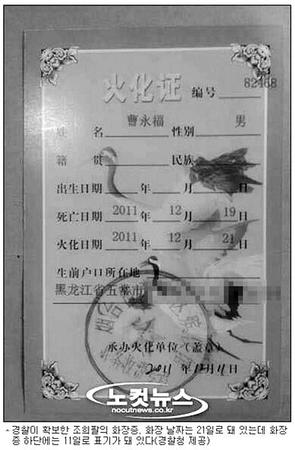 火化证 编号 82468
姓 名 曹永福 性别 男
籍 贯 民族
出生日期 年 月 日
死亡日期 2011 年 12 月 19 日
火化日期 2011 年 12 月 21 日
生前户口所在地
黑龙江省五常市
承办火化单位(盖章)
노컷뉴스
nocutnews.co.kr
- 경찰이 확보한 조희팔의 화장증. 화장 날짜는 21일로 돼 있는데 화장
증 하단에는 11일로 표기가 돼 있다(경찰청 제공)